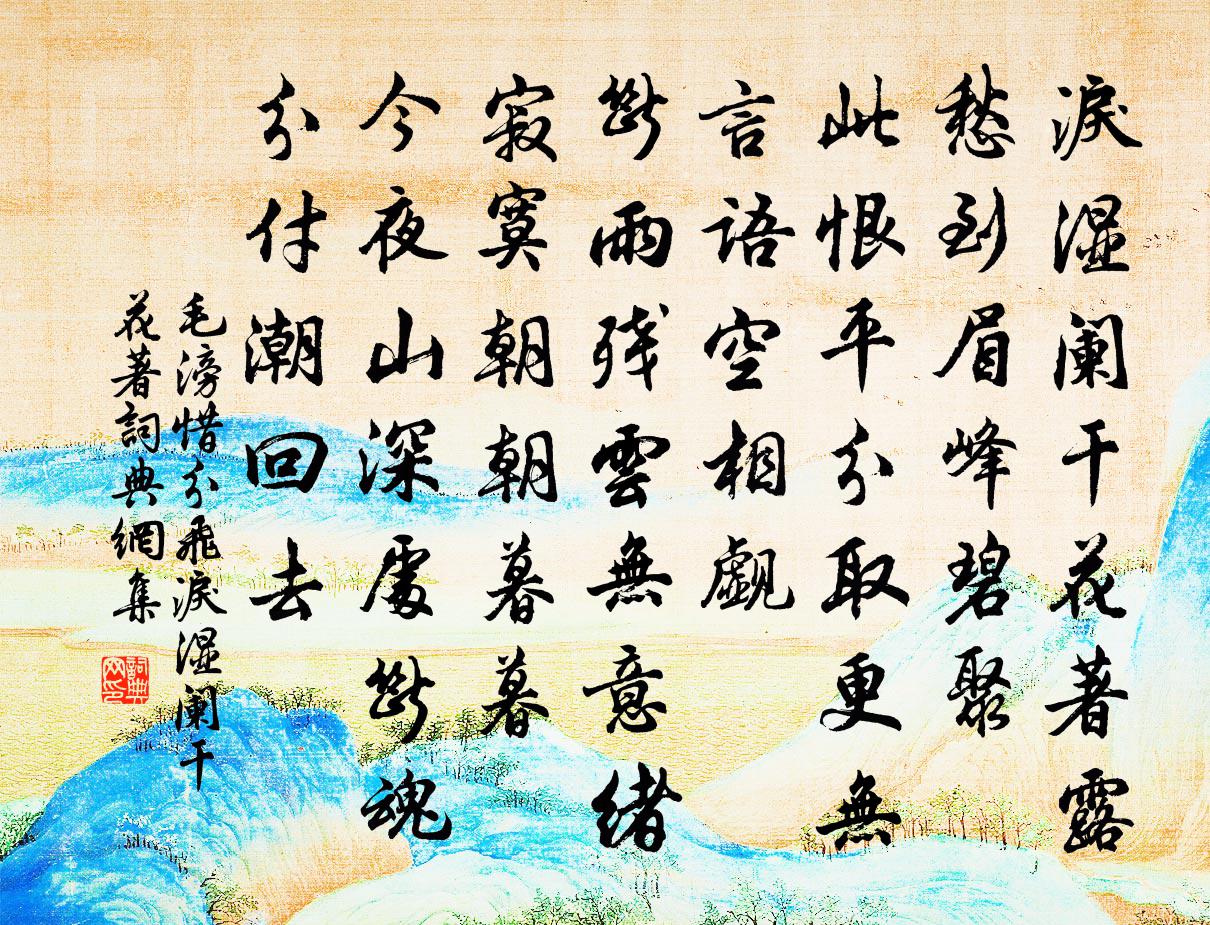 淚湿阑干花著露
愁到眉峰碧聚
此恨平分取更無
言語空相觑
斷雨残雲無意緒
寂寞朝朝暮暮
今夜山深處斷魂
分付潮回去
毛滂惜分飛淚湿阑干
花著詞典網集
詞典
网印